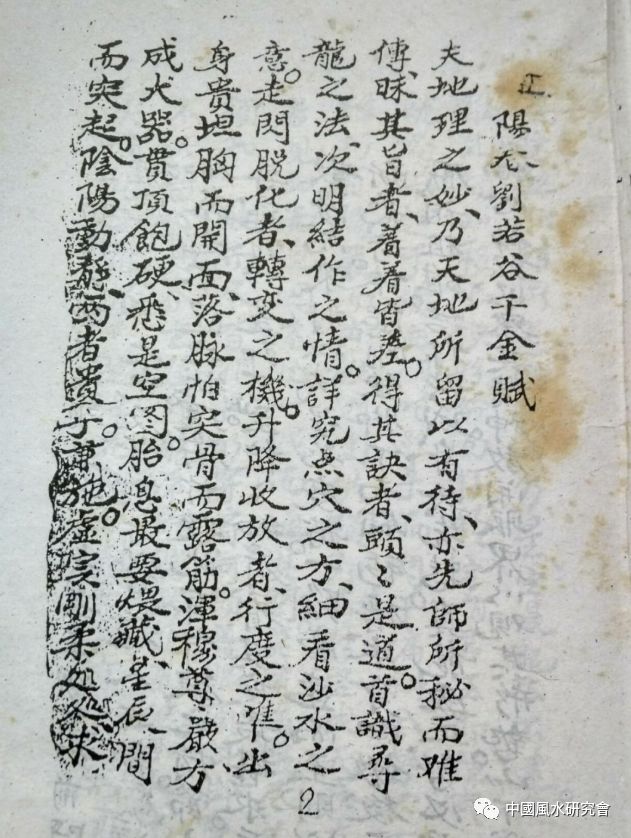 陽劉若谷千金賦
夫地理之妙、乃天地所留以有待、亦先師所秘而难
傳、昧其旨者、着着皆差。得其訣者、頭々是道。首識尋
龍之法、次明結作之情。詳究点穴之方、細看沙水之
意。走閃脱化者、轉变之機。升降收放者、行度之准。出
身貴坦胸而開面、落脉怕突骨而露筋。渾穆尊嚴、方
成大器。貫頂飽硬、悉是空图。胎息最要煨藏、星辰、間
而突起。陰陽動静、两者貴于施。虚实剛柔、求
2
中國風水研究會